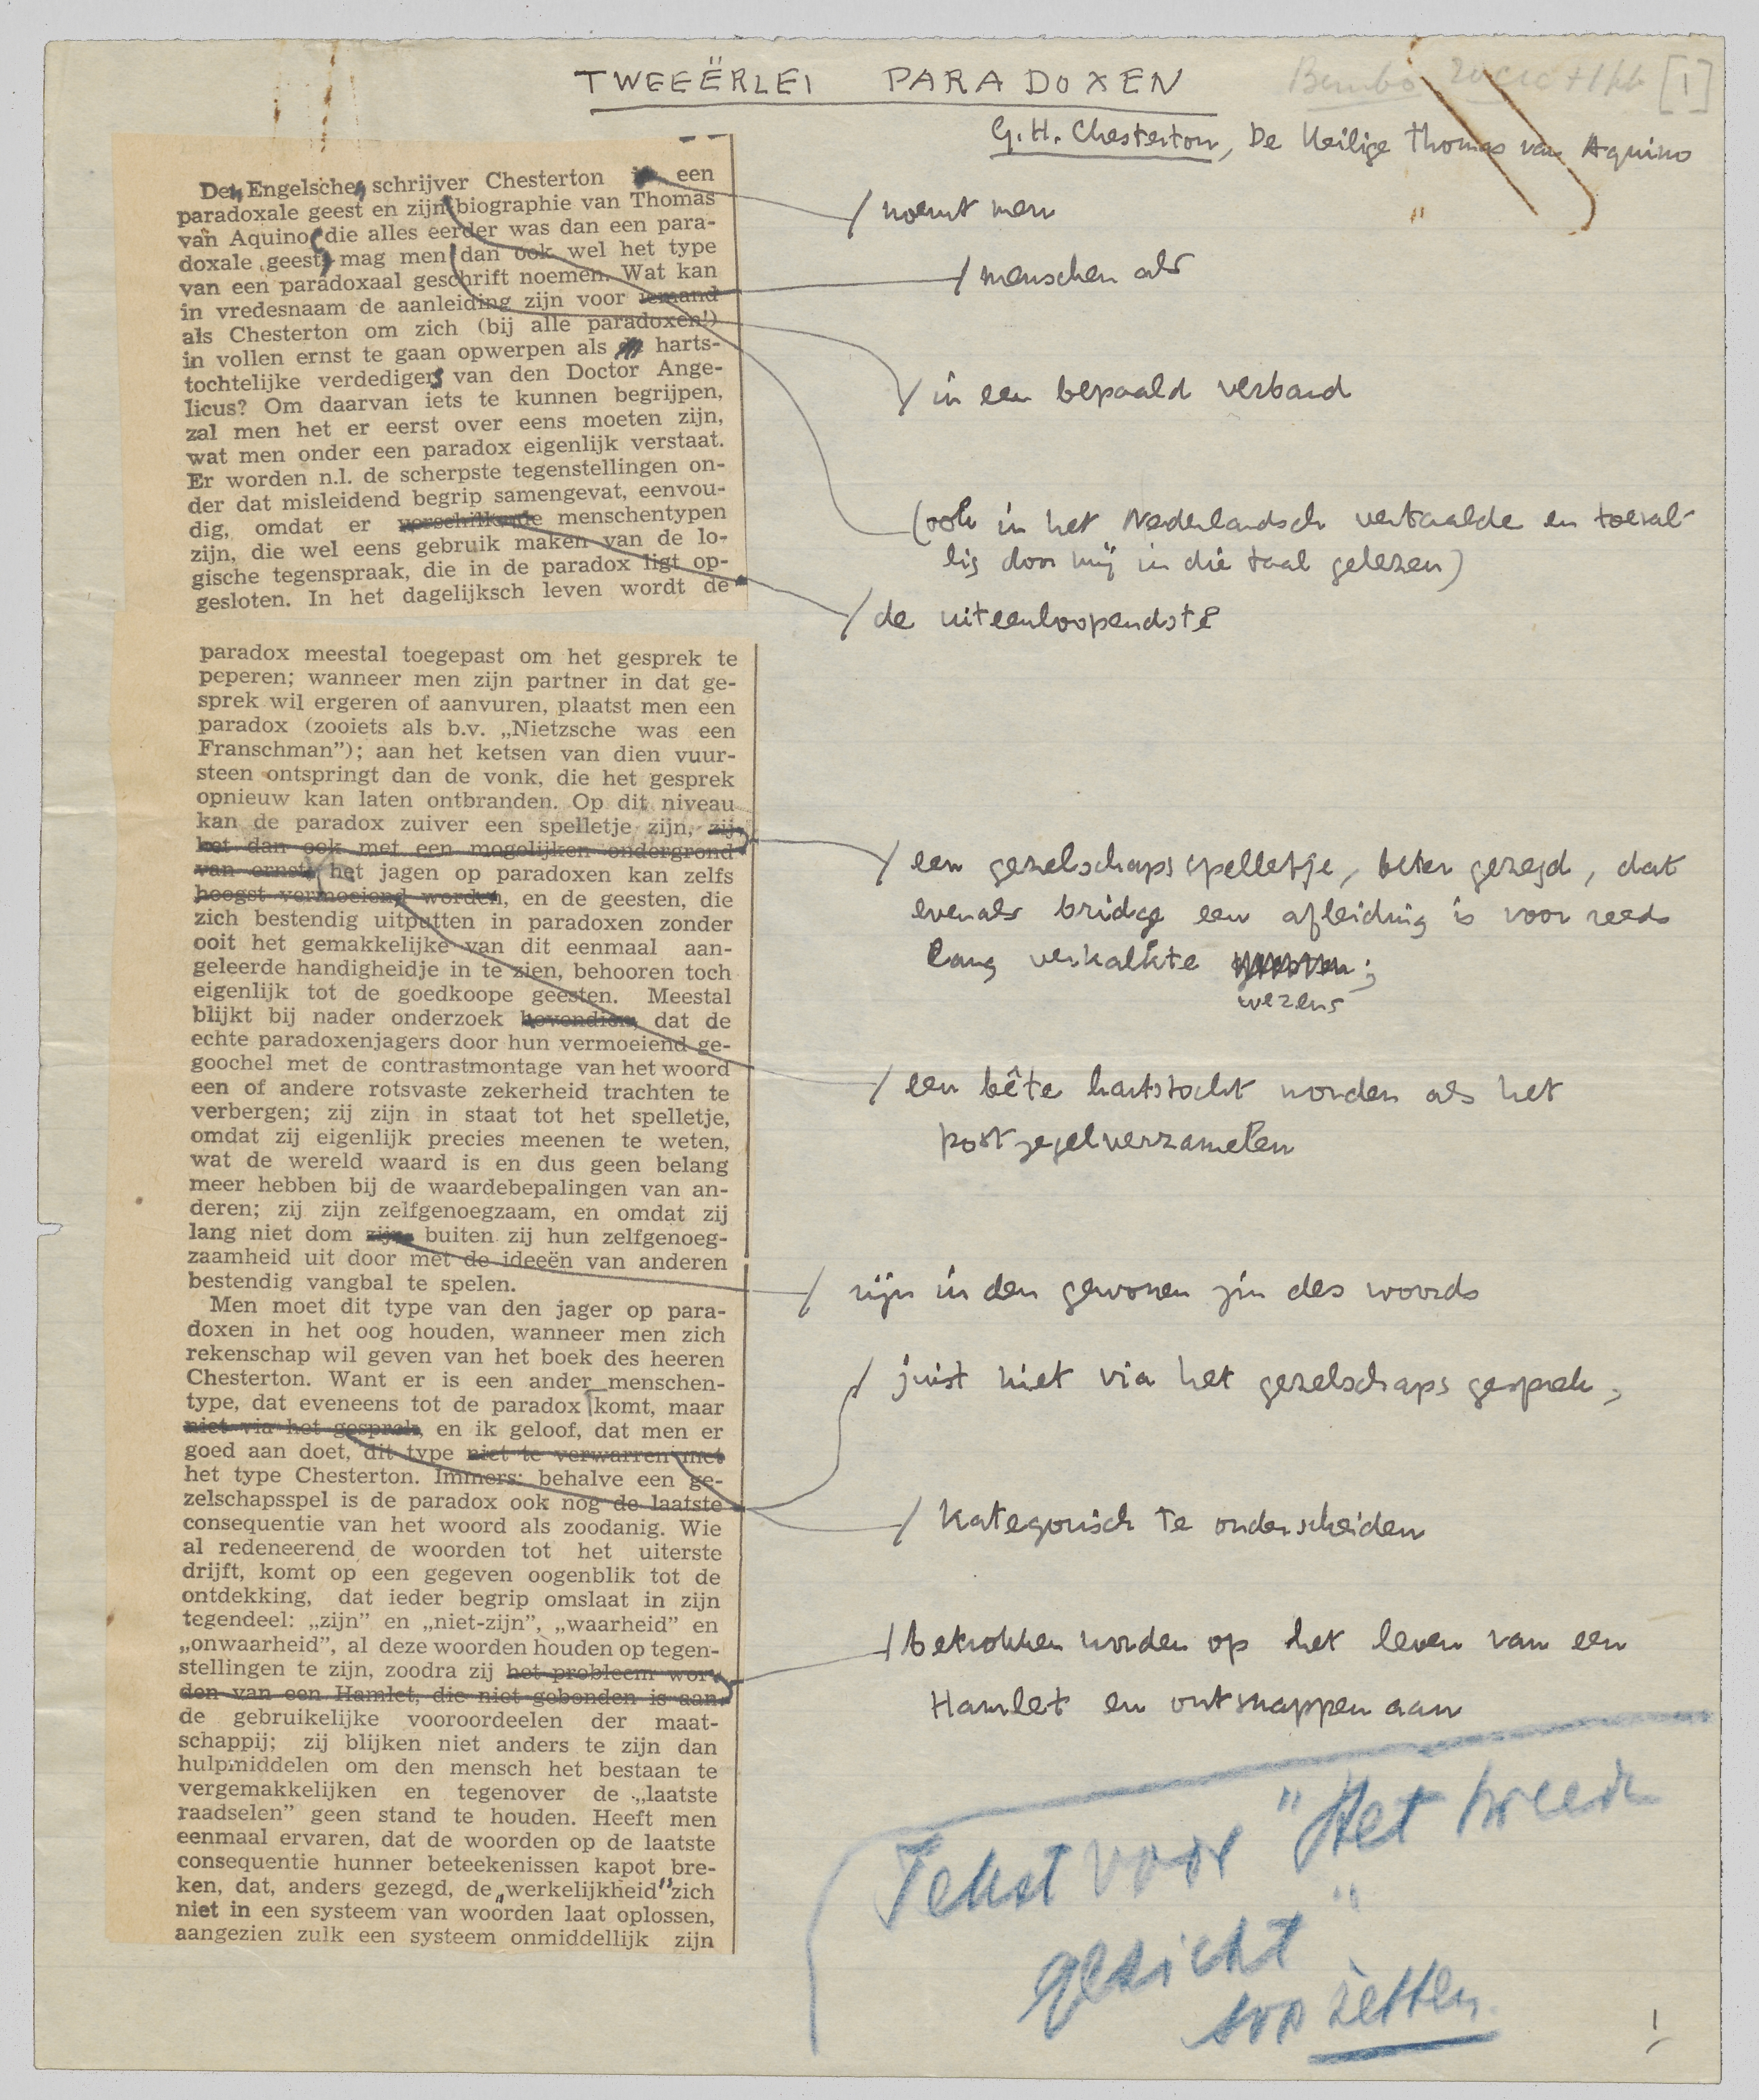 TWEEËRLEI PARADOXEN
Bembo [1]
G.H. Chesterton, De Heilige Thomas van Aquino
Den Engelschen schrijver Chesterton een
paradoxale geest en zijn biographie van Thomas
van Aquino (die alles eerder was dan een para-
doxale geest) mag men dan ook wel het type
van een paradoxaal geschrift noemen. Wat kan
in vredesnaam de aanleiding zijn voor iemand
als Chesterton om zich (bij alle paradoxen!)
in vollen ernst te gaan opwerpen als harts-
tochtelijke verdedigers van den Doctor Ange-
licus? Om daarvan iets te kunnen begrijpen,
zal men het er eerst over eens moeten zijn,
wat men onder een paradox eigenlijk verstaat.
Er worden n.l. de scherpste tegenstellingen on-
der dat misleidend begrip samengevat, eenvou-
dig, omdat er verschillende menschentypen
zijn, die wel eens gebruik maken van de lo-
gische tegenspraak, die in de paradox ligt op-
gesloten. In het dagelijksch leven wordt de
/ noemt men
/ menschen als
/ in een bepaald verband
(ook in het Nederlandsch vertaalde en toeval-
lig door mij in die taal gelezen)
/ de uiteenloopendste
paradox meestal toegepast om het gesprek te
peperen; wanneer men zijn partner in dat ge-
sprek wil ergeren of aanvuren, plaatst men een
paradox (zooiets als b.v. „Nietzsche was een
Franschman”); aan het ketsen van dien vuur-
steen ontspringt dan de vonk, die het gesprek
opnieuw kan laten ontbranden. Op dit niveau
kan de paradox zuiver een spelletje zijn, zij
het dan ook met een mogelijken ondergrond
van ernst; het jagen op paradoxen kan zelfs
hoogst vermoeiend worden, en de geesten, die
zich bestendig uitputten in paradoxen zonder
ooit het gemakkelijke van dit eenmaal aan-
geleerde handigheidje in te zien, behooren toch
eigenlijk tot de goedkoope geesten. Meestal
blijkt bij nader onderzoek bovendien, dat de
echte paradoxenjagers door hun vermoeiend ge-
goochel met de contrastmontage van het woord
een of andere rotsvaste zekerheid trachten te
verbergen; zij zijn in staat tot het spelletje,
omdat zij eigenlijk precies meenen te weten,
wat de wereld waard is en dus geen belang
meer hebben bij de waardebepalingen van an-
deren; zij zijn zelfgenoegzaam, en omdat zij
lang niet dom zijn, buiten zij hun zelfgenoeg-
zaamheid uit door met de ideeën van anderen
bestendig vangbal te spelen.
Men moet dit type van den jager op para-
doxen in het oog houden, wanneer men zich
rekenschap wil geven van het boek des heeren
Chesterton. Want er is een ander menschen-
type, dat eveneens tot de paradox komt, maar
niet via het gesprek, en ik geloof, dat men er
goed aan doet, dit type niet te verwarren met
het type Chesterton. Immers: behalve een ge-
zelschapsspel is de paradox ook nog de laatste
consequentie van het woord als zoodanig. Wie
al redeneerend de woorden tot het uiterste
drijft, komt op een gegeven oogenblik tot de
ontdekking, dat ieder begrip omslaat in zijn
tegendeel: „zijn” en „niet-zijn”, „waarheid” en
„onwaarheid”, al deze woorden houden op tegen-
stellingen te zijn, zoodra zij het probleem wor-
den van een Hamlet, die niet gebonden is aan
de gebruikelijke vooroordeelen der maat-
schappij; zij blijken niet anders te zijn dan
hulpmiddelen om den mensch het bestaan te
vergemakkelijken en tegenover de „laatste
raadselen” geen stand te houden. Heeft men
eenmaal ervaren, dat de woorden op de laatste
consequentie hunner beteekenissen kapot bre-
ken, dat, anders gezegd, de „werkelijkheid” zich
niet in een systeem van woorden laat oplossen,
aangezien zulk een systeem onmiddellijk zijn
/ een gezelschapsspelletje, beter gezegd, dat
evenals bridge een afleiding is voor reeds
lang verkalkte ;
wezens
/ een bête hartstocht worden als het
postzegelverzamelen
/ zijn in den gewonen zin des woords
/ juist niet via het gezelschapsgesprek,
/ kategorisch te onderscheiden
/ betrokken worden op het leven van een
Hamlet en ontsnappen aan
Tekst voor "Het tweede
gezicht"
zetten.